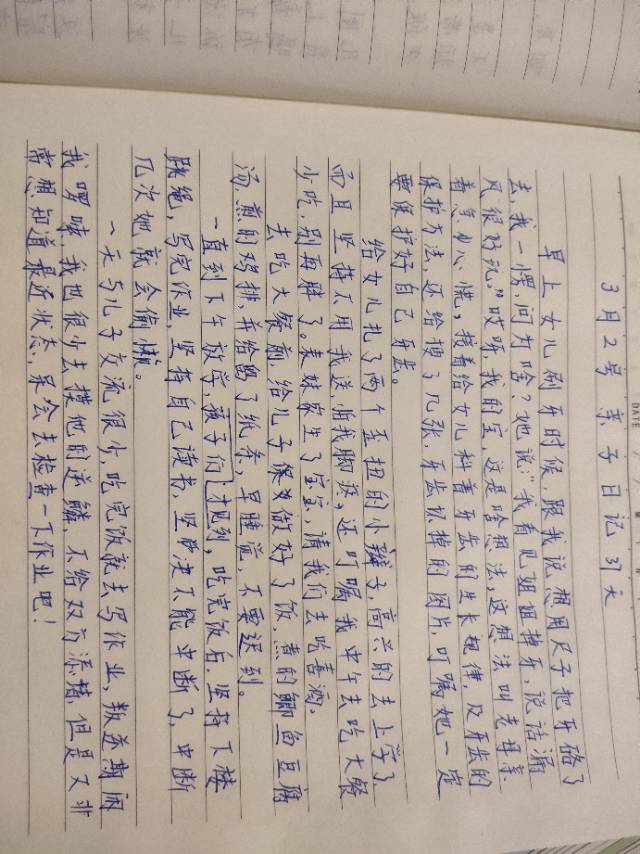 DATE
3月2号 亲子日记 31天
早上女儿刷牙时候,跟我说想用尺子把牙硌了
去,我一愣,问为啥?她说:"我看见姐姐掉牙,说话漏
风很好玩。"哎呀,我的宝,这是啥想法,这想法叫老母亲
着急心慌,接着给女儿科普牙齿的生长规律,及牙齿的
保护方法,还给搜了几张,牙齿坏掉的图片,叮嘱她一定
要保护好自己牙齿。
给女儿扎了两个歪扭的小辫子,高兴的去上学了
而且坚持不用我送,怕我脚疼,还叮嘱我中午去吃大餐
少吃,别再胖了。表妹家生了宝宝,请我们去吃喜酒。
去吃大餐前,给儿子做好了饭,煮的鲫鱼豆腐
汤,煎的鸡排,并给留了纸条,早睡觉,不要迟到。
一直到下午放学,孩子们才见到,吃完饭后,坚持下楼
跳绳,写完作业,坚持自己读书,坚决不能中断了,中断
几次她就会偷懒。
一天与儿子交流很少,吃完饭就去写作业,叛逆期闲
我啰嗦,我也很少去摸他的逆鳞,不给双方添堵,但是又非
常想知道最近状态,呆会去检查一下作业吧!